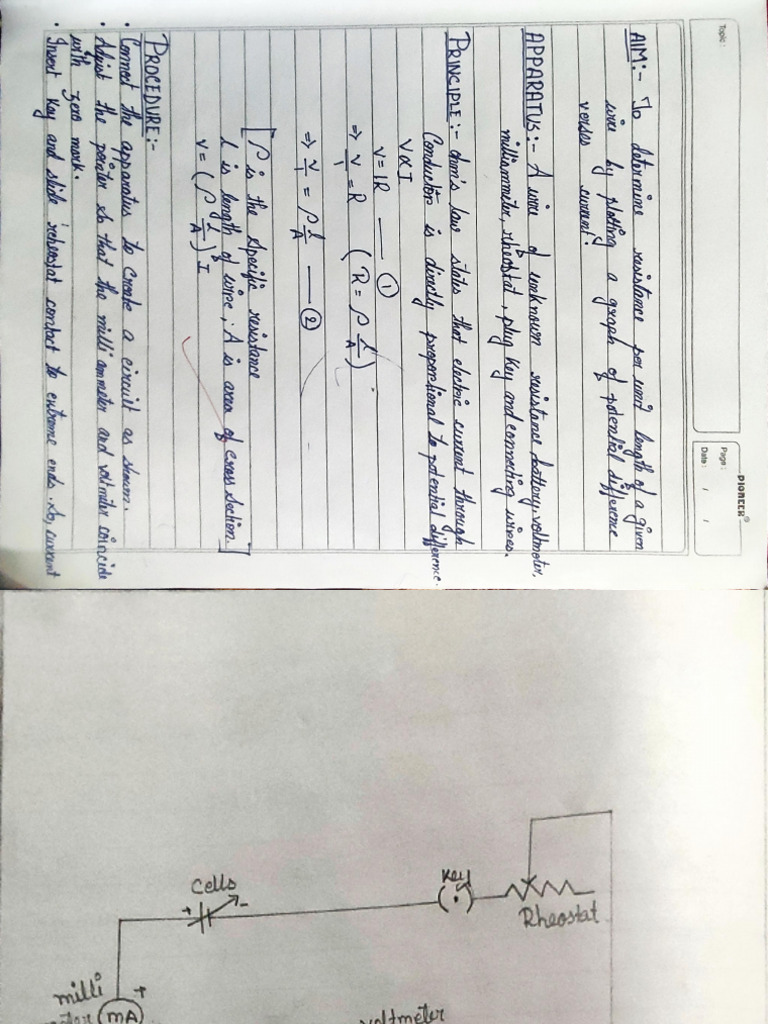 Topic:
PIONEER®
Page:
Date: / /
AIM:- To determine resistance per unit length of a given
wire by plotting a graph of potential difference
verses current!
APPARATUS:- A wire of unknown resistance battery, voltmeter,
milliammeter, rheostat, plug key and connecting wires.
PRINCIPLE:- ohm's law states that electric current through
Conductor is directly proportional to potential difference.
V∝I
V=IR — ①
⇒ V/I = R (R = ρ l/A)
⇒ V/I = ρ l/A — ②
[ρ is the specific resistance
l is length of wire; A is area of cross section.]
V = (ρ l/A) I
PROCEDURE:-
• Connect the apparatus to create a circuit as shown.
• Adjust the pointer so that the milli ammeter and voltmeter coincide
with zero mark.
• Insert key and slide rcheostat contact to extreme ends. So, current
Key
(•)
Rheostat
Cells
+ -
milli
+
mA
voltmeter